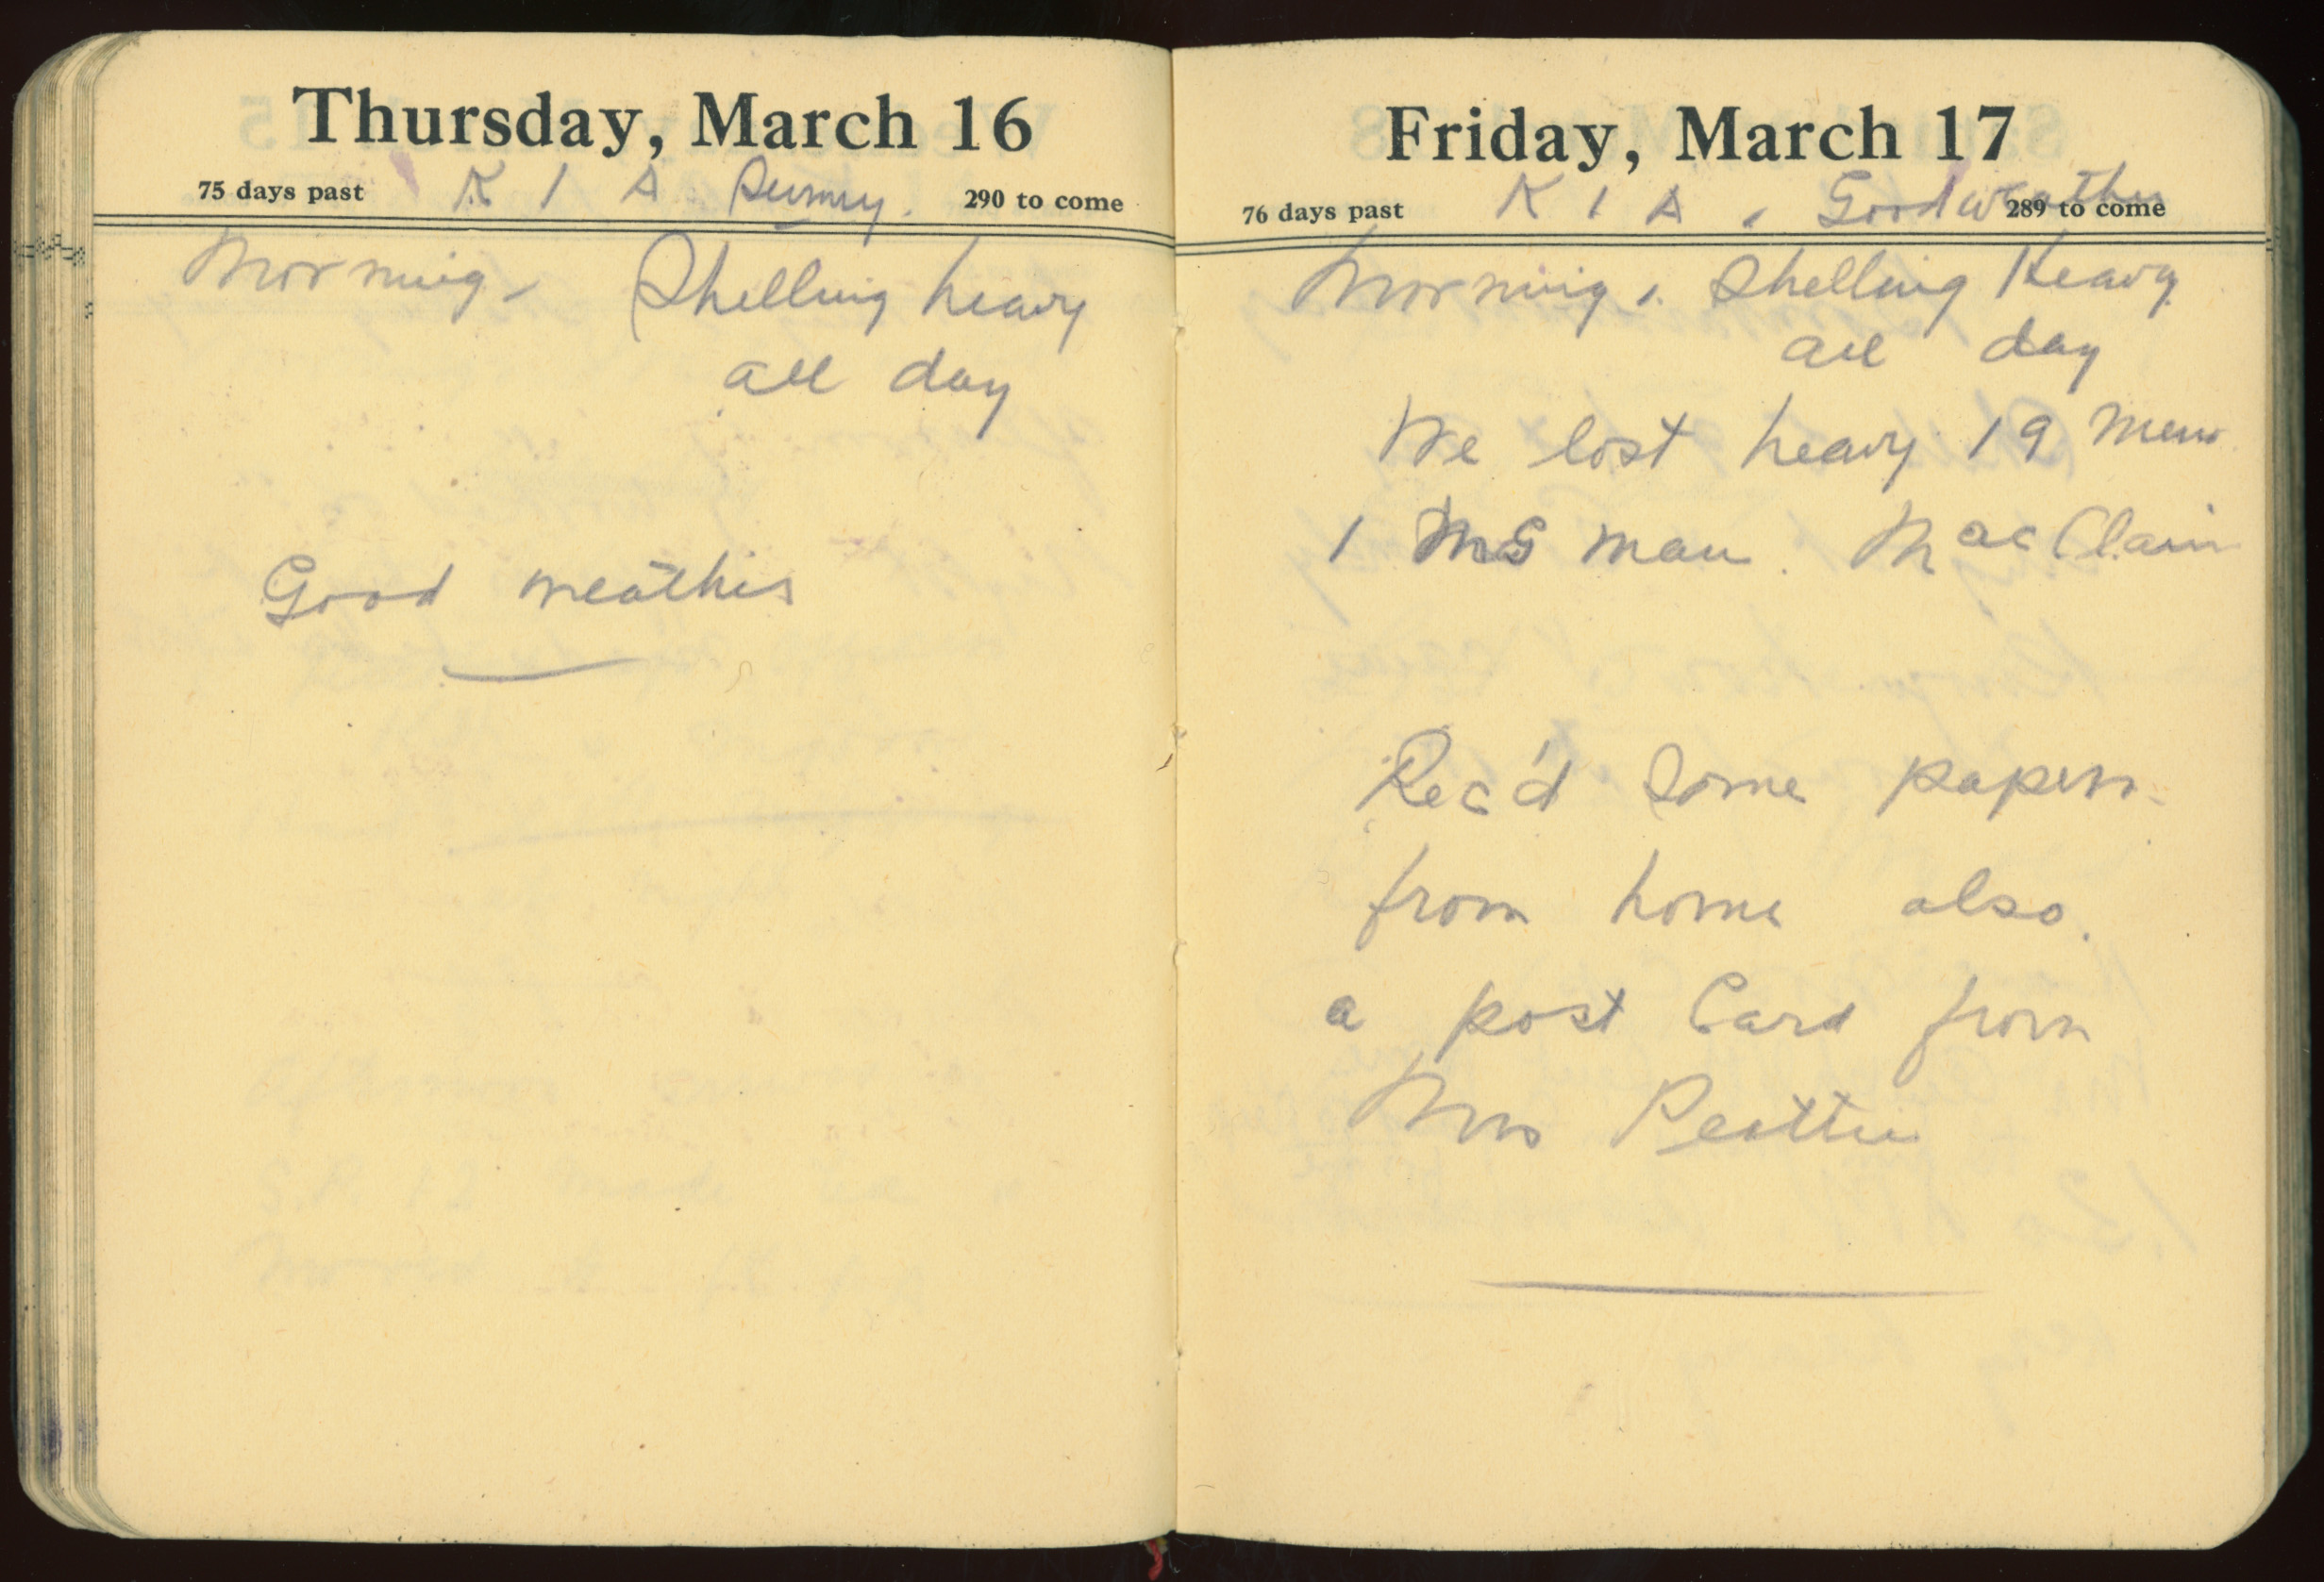 Thursday, March 16
75 days past K I A Sunny. 290 to come
Morning - Shelling heavy
all day
Good weather
Friday, March 17
76 days past K I A . Good weather 289 to come
Morning . Shelling Heavy
all day
We lost heavy 19 men
1 MG man . MacClain
Rec'd Some papers
from home also.
a post Card from
Mrs Peattie